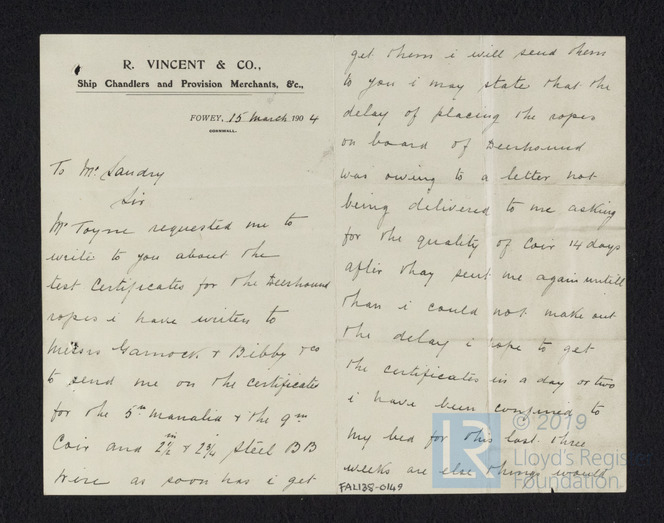 R. VINCENT & CO.,
Ship Chandlers and Provision Merchants, &c.,
FOWEY, 15 March 1904
CORNWALL.
To Mr Sandry
Sir
Mr Toyne requested me to
write to you about the
test Certificates for the Deerhound
ropes i have writen to
Messrs Garnock & Bibby & co
to send me on the certificates
for the 5in manalia & the 9in
Coir and 2½in & 2¾ Steel BB
Wire as soon has i get
get them i will send them
to you i may state that the
delay of placing the ropes
on board of Deerhound
was owing to a letter not
being delivered to me asking
for the quality of Coir 14 days
after thay sent me again untill
than i could not make out
the delay i hope to get
the certificates in a day or two
i have been confined to
my bed for this last three
weeks are else things would
FAL128-0149
LR
© 2019
Lloyd's Register
Foundation